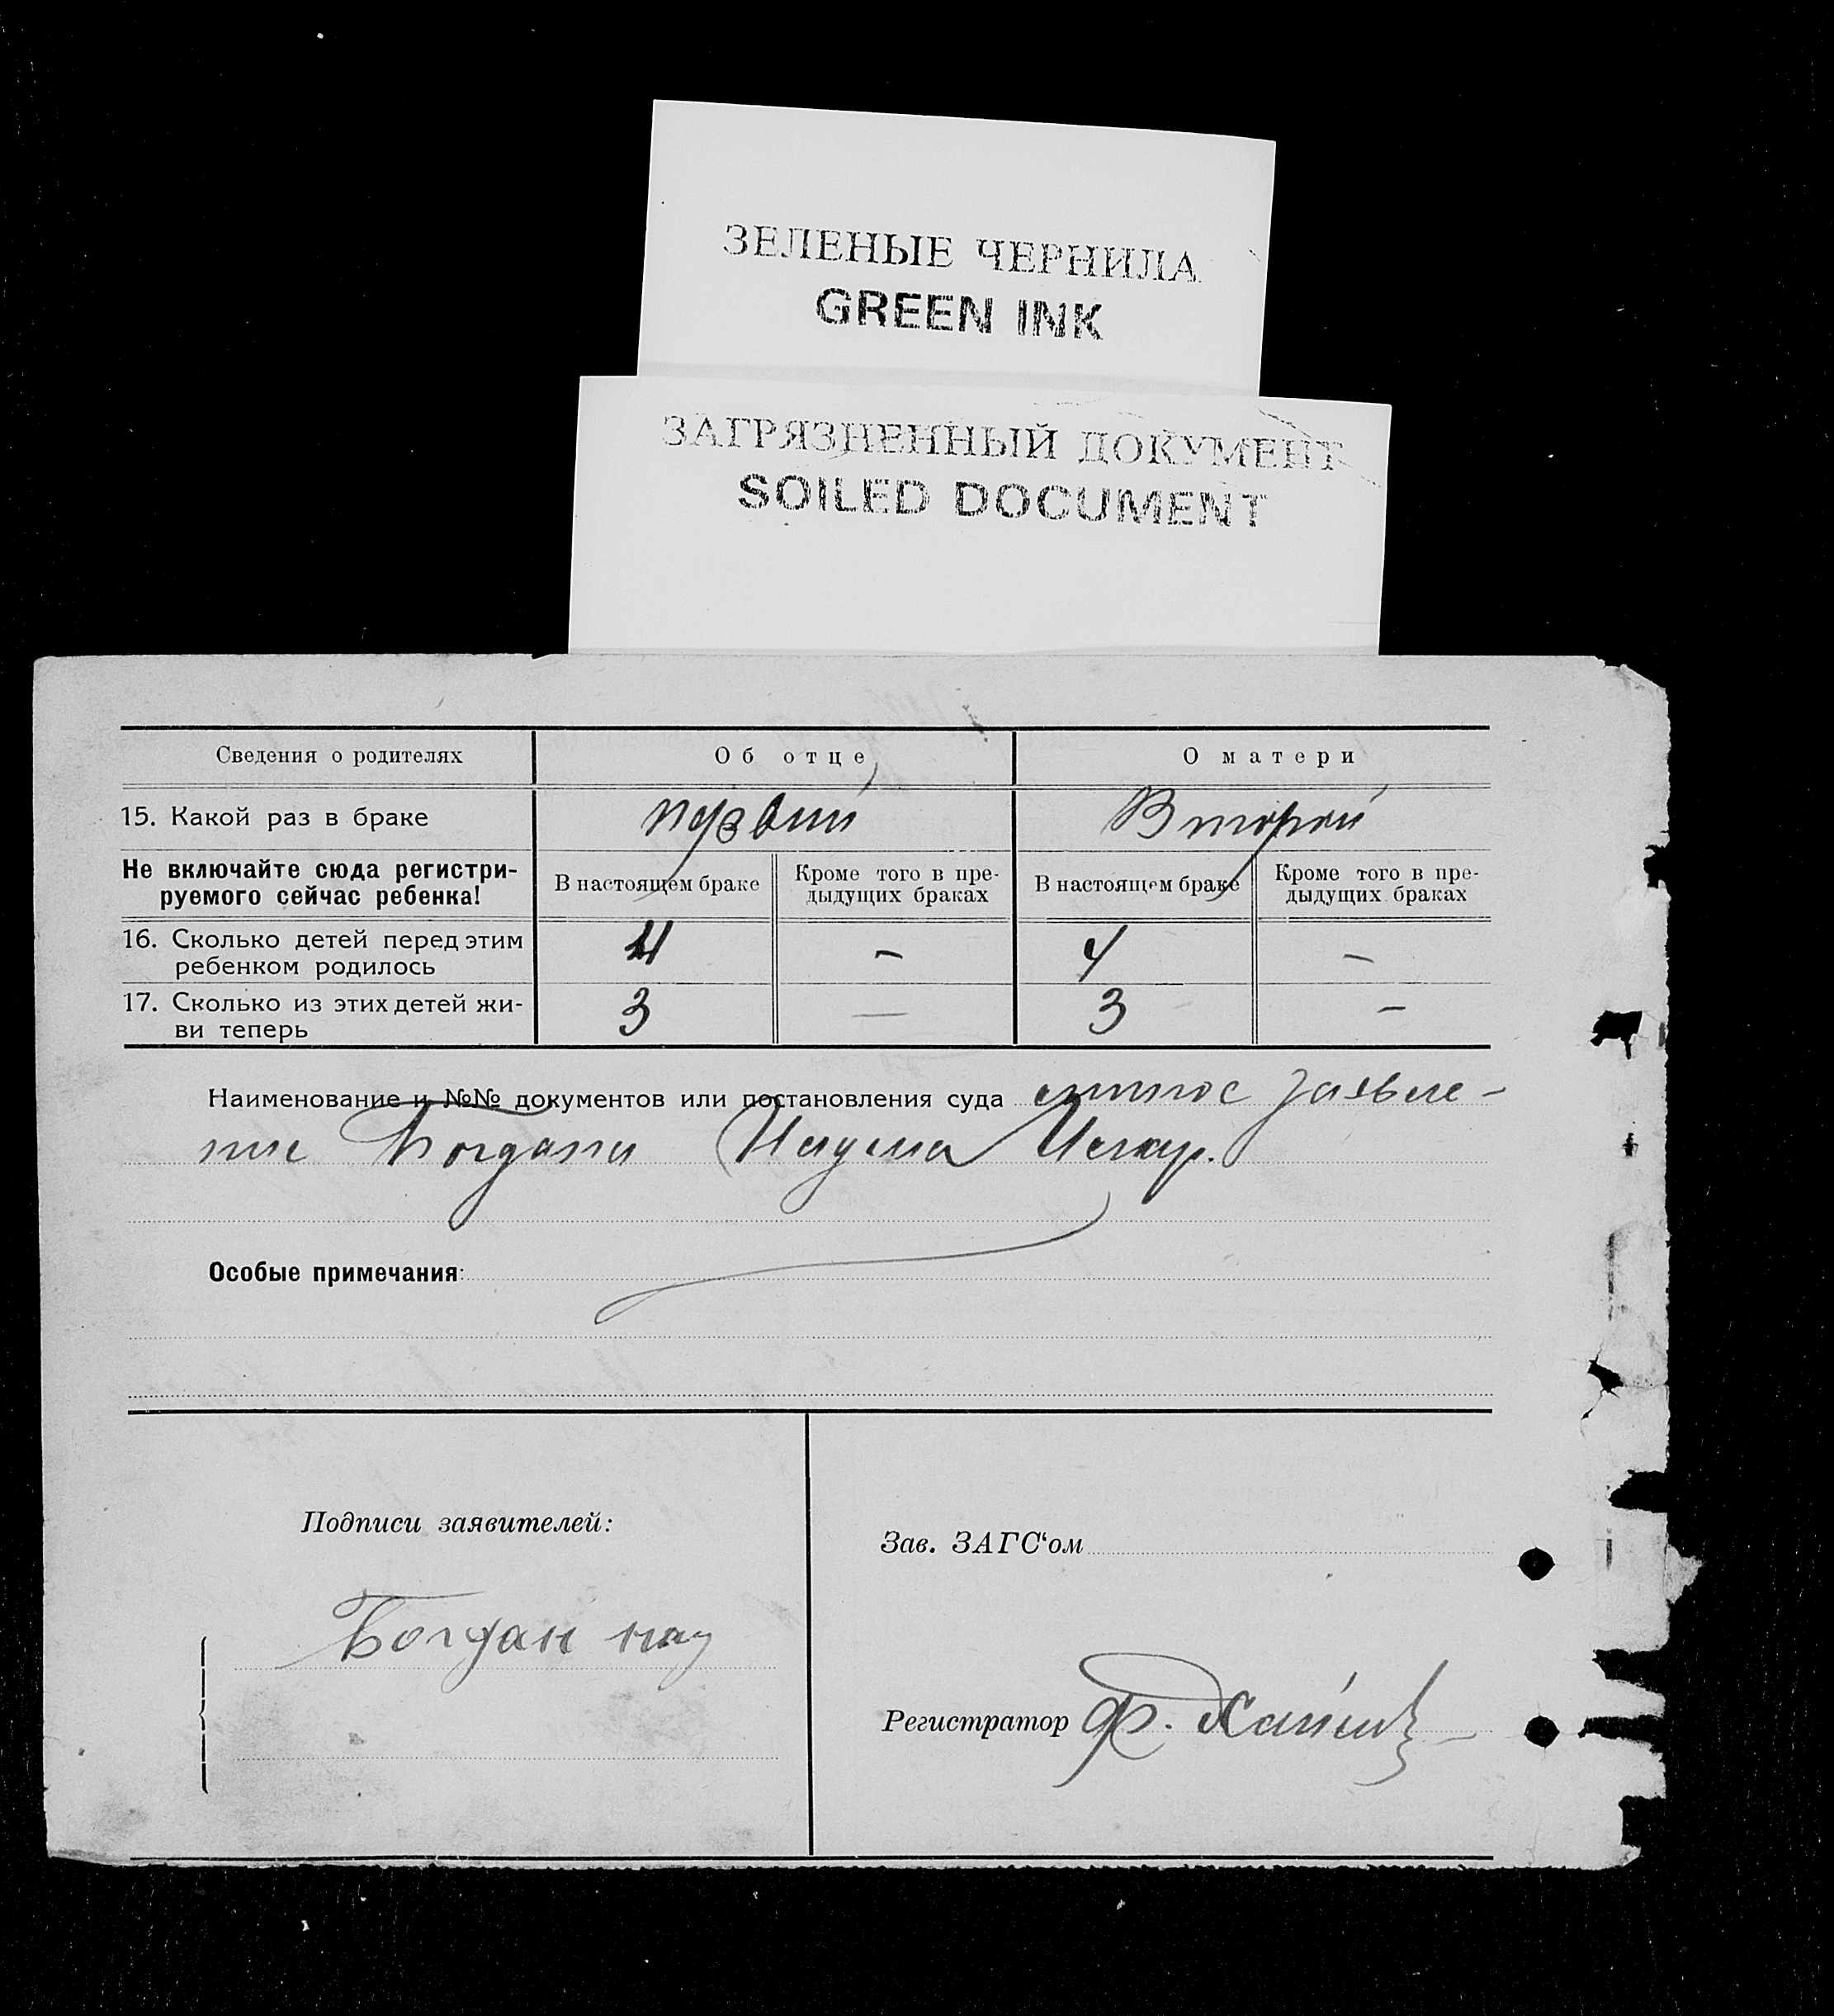 ЗЕЛЕНЫЕ ЧЕРНИЛА
GREEN INK
ЗАГРЯЗНЕННЫЙ ДОКУМЕНТ
SOILED DOCUMENT
Сведения о родителях Об отце О матери
15. Какой раз в браке первый Второй
Не включайте сюда регистри-
руемого сейчас ребенка!
В настоящем браке
Кроме того в пре-
дыдущих браках
В настоящем браке
Кроме того в пре-
дыдущих браках
16. Сколько детей перед этим
ребенком родилось
4 – 4 –
17. Сколько из этих детей жи-
ви теперь
3 — 3 –
Наименование и №№ документов или постановления суда заявле-
ние Богдана Наума
Особые примечания:
Подписи заявителей:
Богдан
Зав. ЗАГС‘ом
Регистратор Ф.